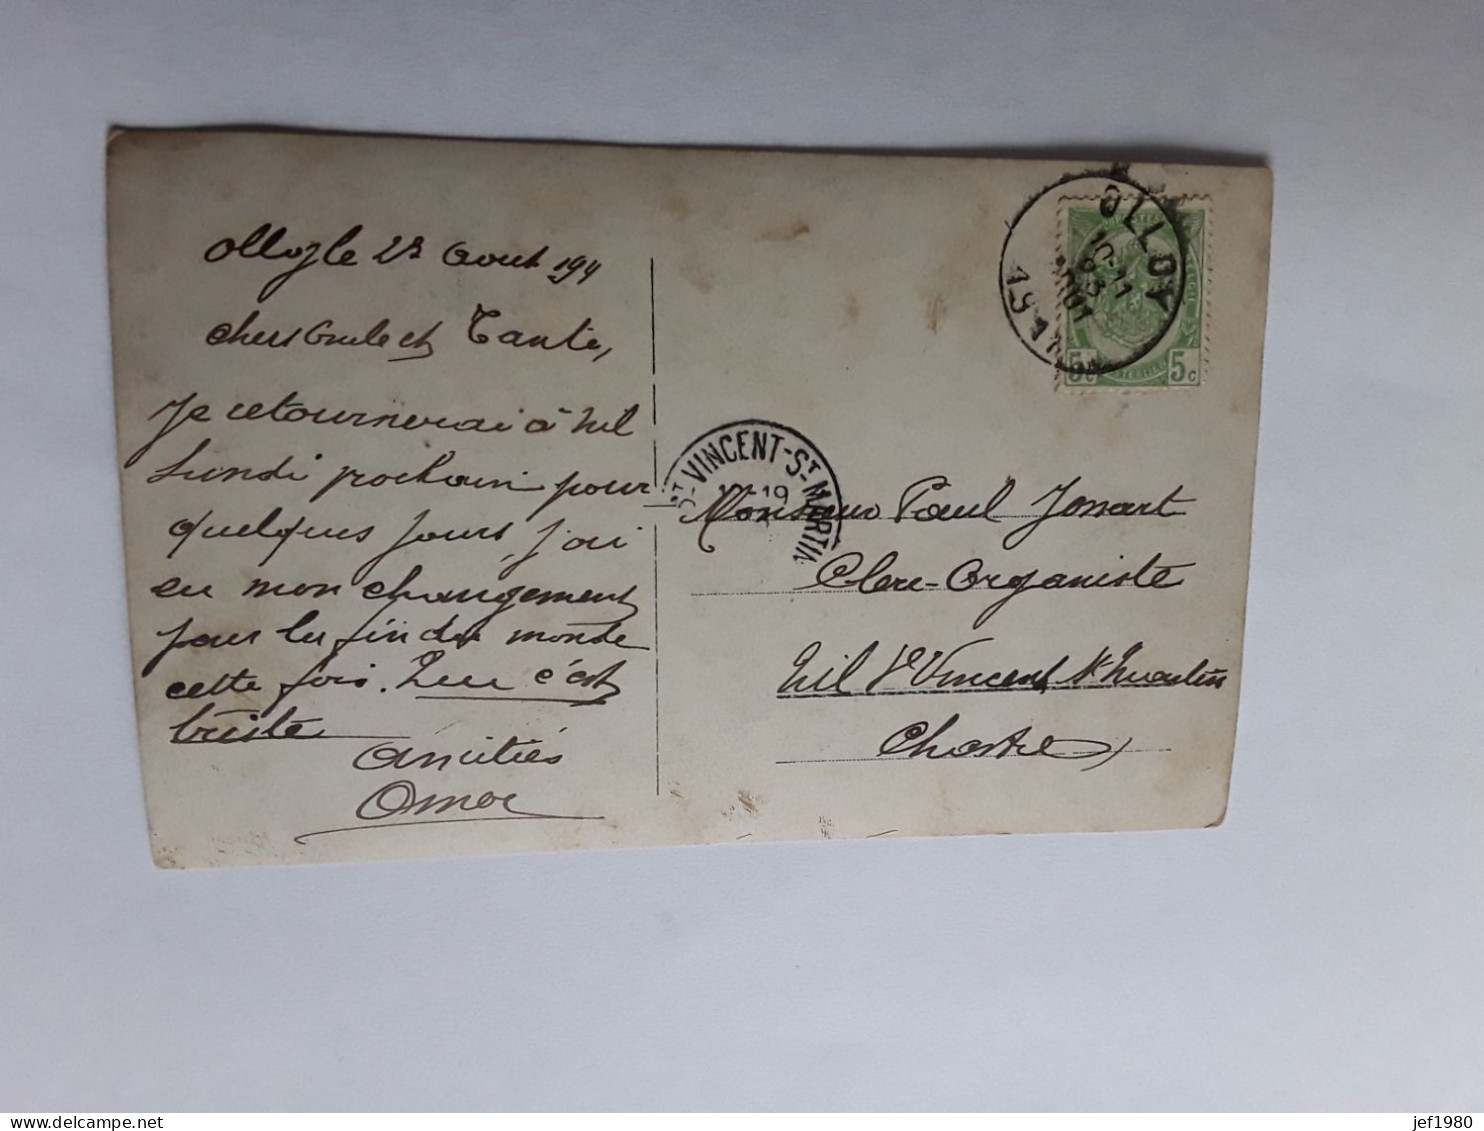 Aout 1911
chers Oncle et Tante,
Je retournerai à Nil
Lundi prochain pour
quelques jours, j'ai
eu mon changement
pour la fin du
cette fois. Que c'est
triste
Amitiés
Omer
OLLOY
10-11
23
AOUT
1911
5c 5c
ST VINCENT-ST MARTIN
19
Monsieur Paul Jonnart
Clerc-Organiste
Nil St Vincent St Martin
Chastre
jef1980